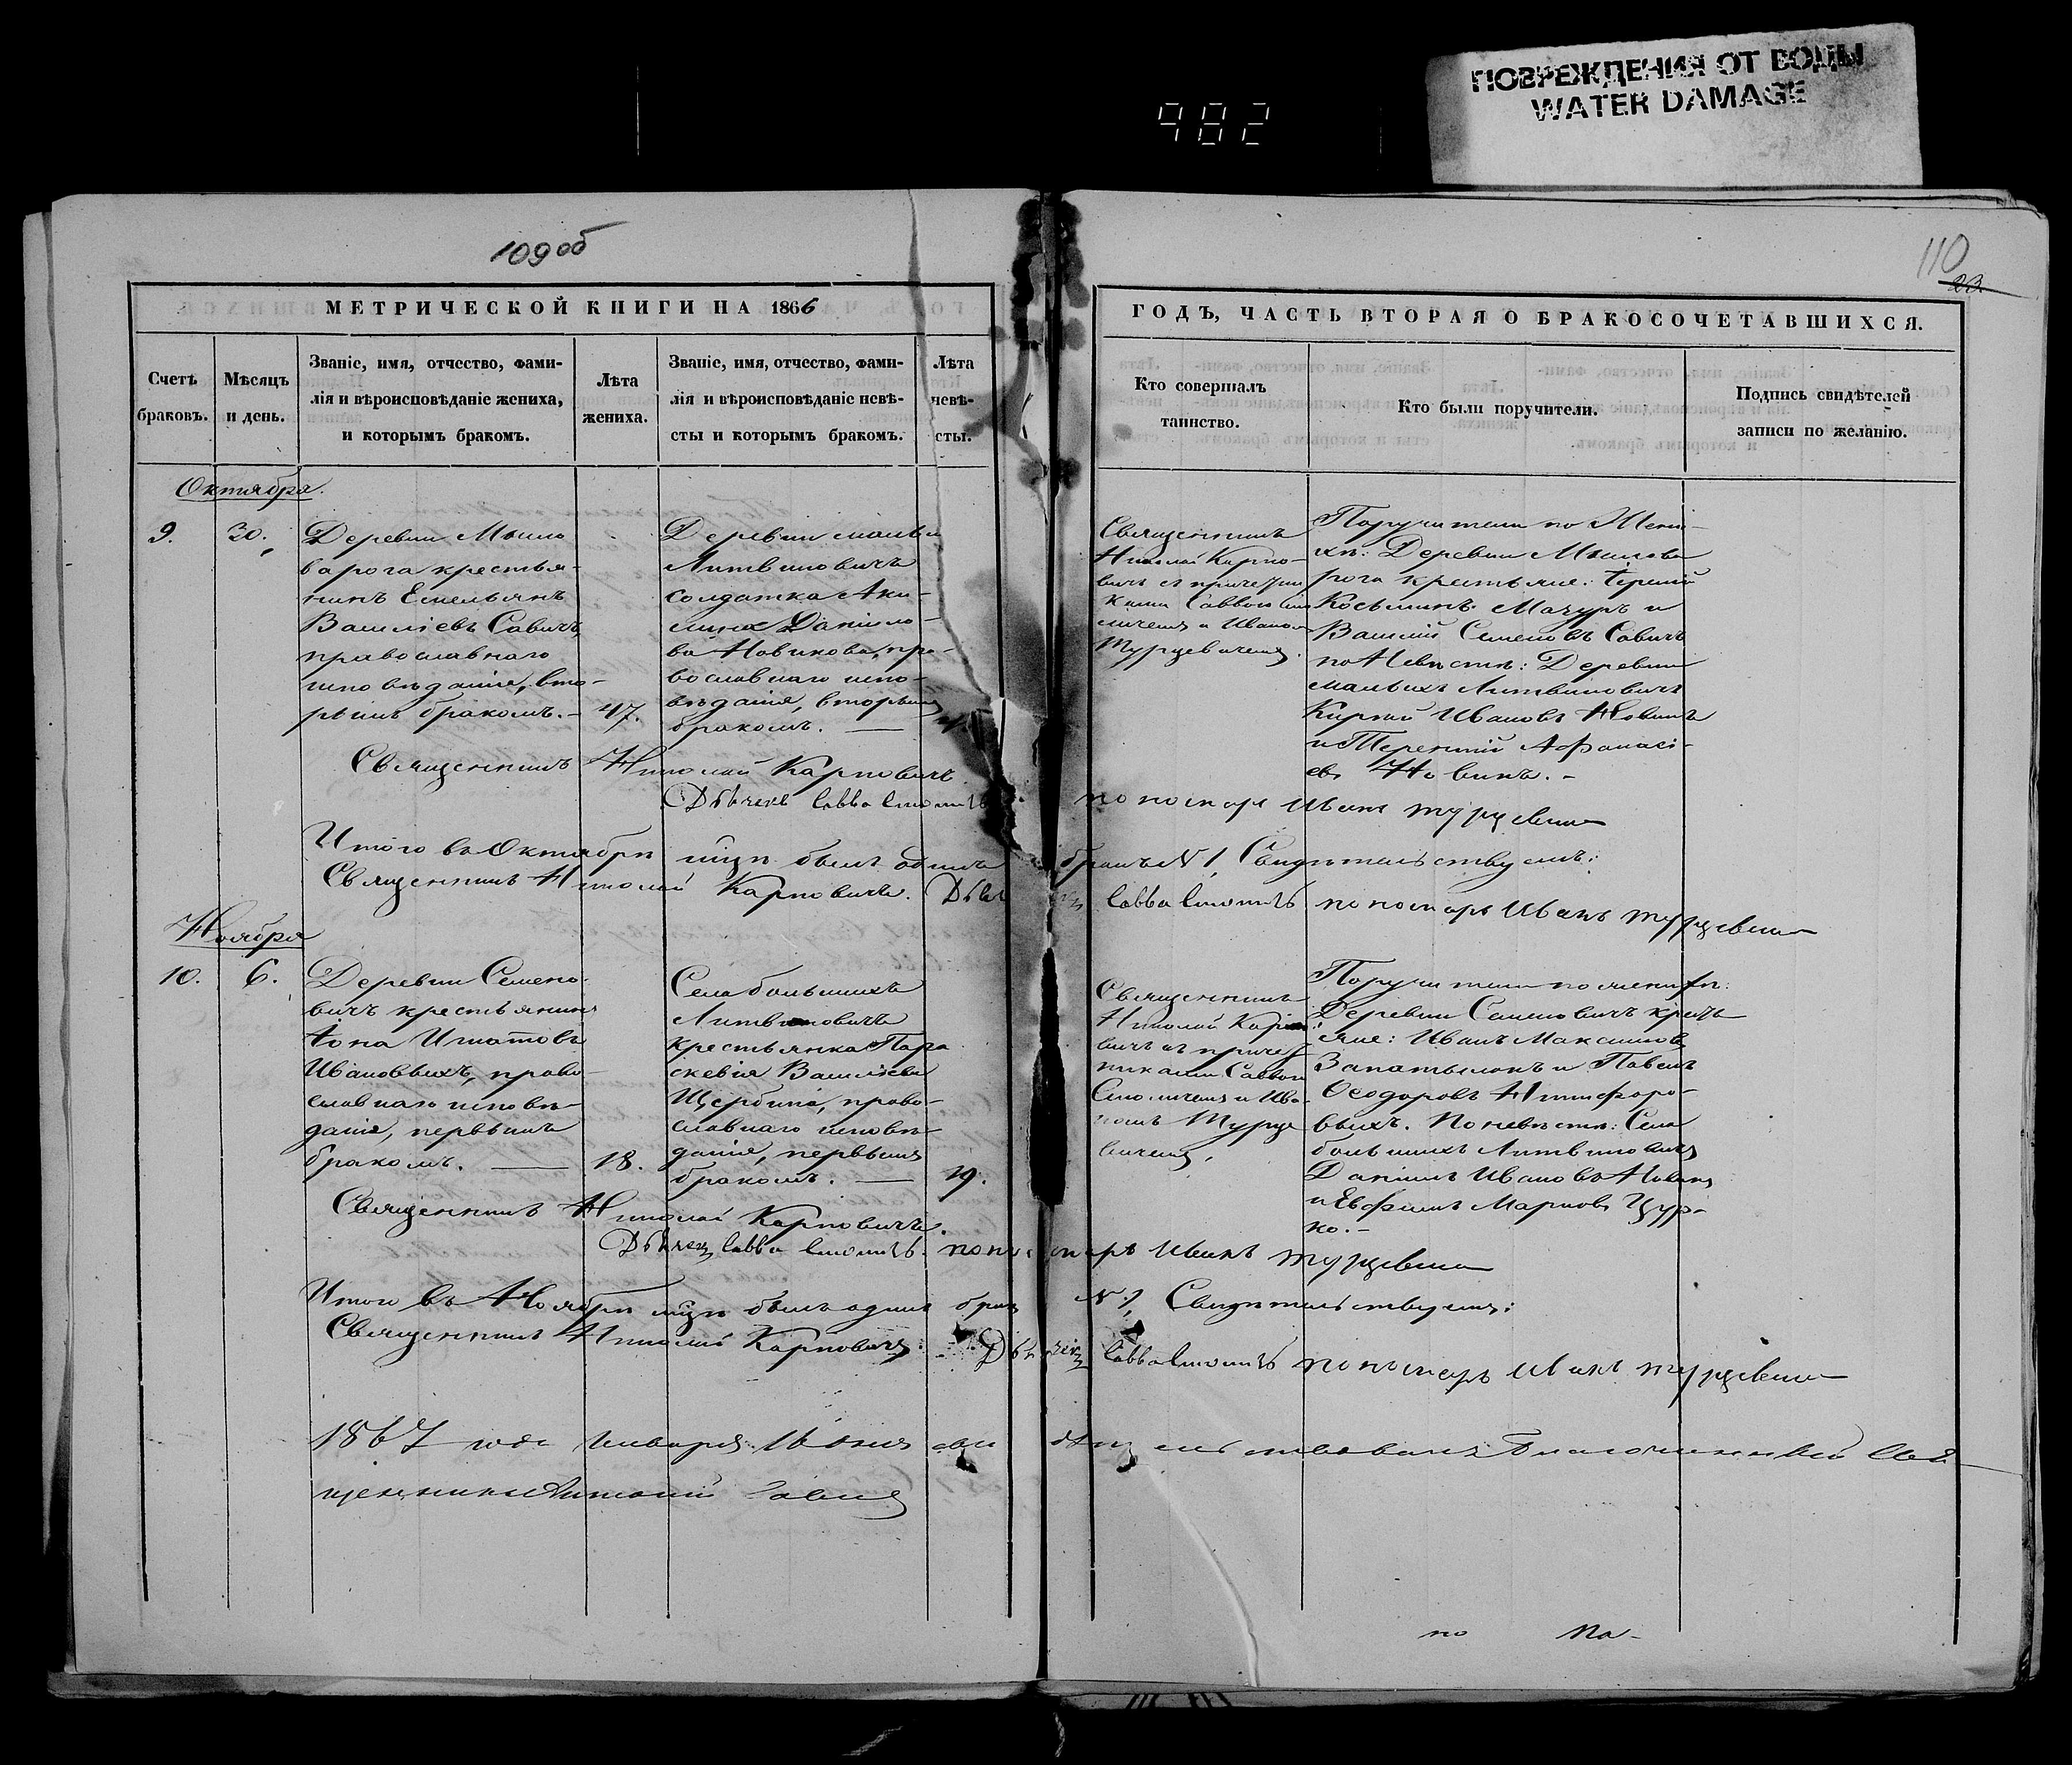 ПОВРЕЖДЕНИЯ ОТ ВОДЫ
WATER DAMAGE
982
109об
110
23.
МЕТРИЧЕСКОЙ КНИГИ НА 1866
ГОДЪ, ЧАСТЬ ВТОРАЯ О БРАКОСОЧЕТАВШИХСЯ.
Счетъ
браковъ.
Мѣсяцъ
и день.
Званіе, имя, отчество, фами-
лія и вѣроисповѣданіе жениха,
и которымъ бракомъ.
Лѣта
жениха.
Званіе, имя, отчество, фами-
лія и вѣроисповѣданіе невѣ-
сты и которымъ бракомъ.
Лѣта
невѣ-
сты.
Кто совершалъ
таинство.
Кто были поручители.
Подпись свидѣтелей
записи по желанію.
Октября.
9.
30.
Деревни Мыло
варога крестья-
нинъ Емельянъ
Василіевъ Савичъ,
православнаго
исповѣданія, вто-
рымъ бракомъ.–
47.
Деревни малыхъ
Литвиновичъ
солдатка Аки-
лина Даніило-
ва Новикова, пра-
вославнаго испо-
вѣданія, вторымъ
бракомъ. —
Священникъ
Николай Карпо-
вичъ съ причетни
ками Саввою
и Иваномъ
Турцевичемъ.
Поручители по Жени-
хѣ: Деревни Мылова
рога крестьяне:
Косьминъ Мачуръ и
Василій Семеновъ Савичъ
по Невѣстѣ: Деревни
малыхъ Литвиновичъ
Ивановъ Новикъ
и Терентій Афанасі-
евъ Новикъ.–
Священникъ Николай Карповичъ.
Дьячекъ Савва пономарь Иванъ Турцевичъ
Итого въ Октябрѣ мцѣ былъ одинъ бракъ № 1, Свидѣтельствуемъ:
Священникъ Николай Карповичъ. Дьячекъ Савва пономарь Иванъ Турцевичъ
Ноября
10.
6.
Деревни Семено-
вичъ крестьянинъ
Іона Игнатовъ
Ивановыхъ, право-
славнаго исповѣ-
данія, первымъ
бракомъ. —
18.
Села большихъ
Литвиновичъ
крестьянка Пара
скевія Василіева
Щербина, право-
славнаго исповѣ-
данія, первымъ
бракомъ. —
19.
Священникъ
Николай Карпо
вичъ съ причет
никами Саввою
и Ива-
номъ Турце
вичемъ.
Поручители по женихѣ:
Деревни Семеновичъ кресть
яне: Иванъ Максимовъ
и Павелъ
Ѳеодоровъ Никифоро-
выхъ. По невѣстѣ: Села
большихъ Литвиновичъ
Даніилъ Ивановъ Новикъ
и Евфимъ Марковъ Цур-
ко.–
Священникъ Николай Карповичъ.
Дьячекъ Савва пономарь Иванъ Турцевичъ
Итого въ Ноябрѣ мцѣ былъ одинъ бракъ № 1, Свидѣтельствуемъ:
Священникъ Николай Карповичъ. Дьячекъ Савва пономарь Иванъ Турцевичъ
1867 года Января 16 дня свидѣтельствовалъ Благочинный Свя-
щенникъ Антоній
по На-